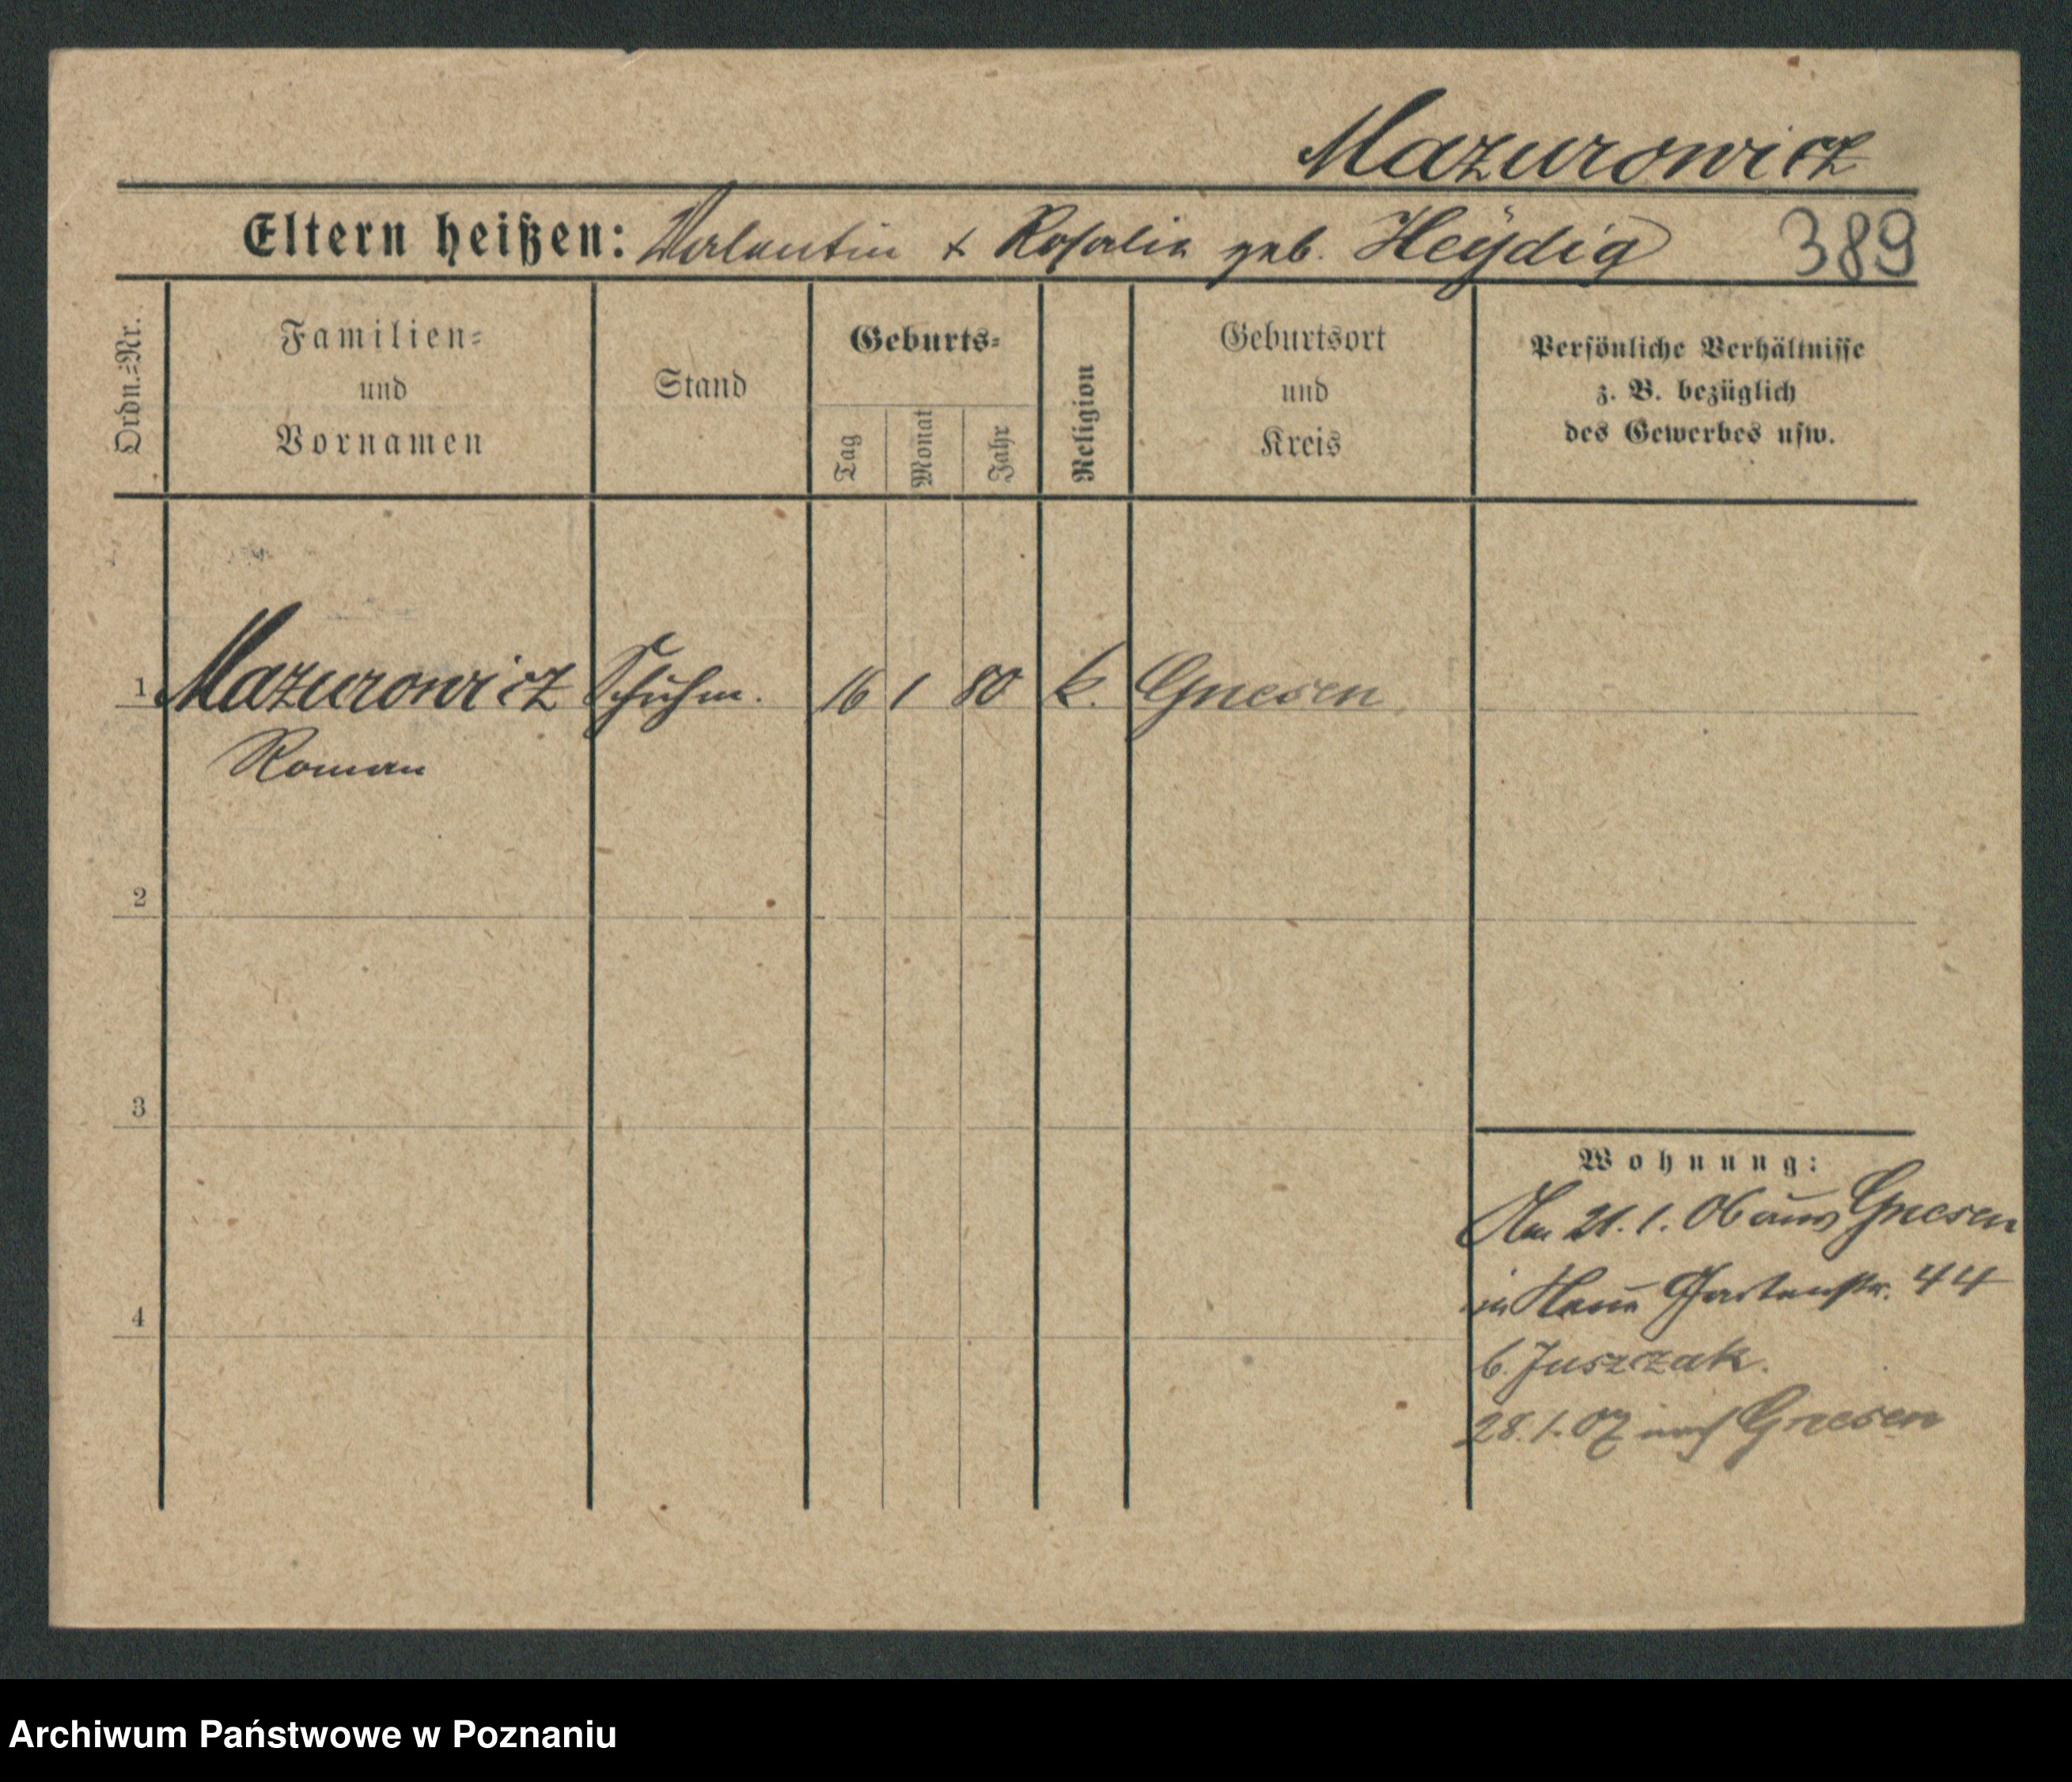 Mazurowicz
Eltern heißen: Valentin & Rosalia geb. Heÿdig 389
Ordn.=Nr.
Familien=
und
Vornamen
Stand
Geburts=
Tag
Monat
Jahr
Religion
Geburtsort
und
Kreis
Persönliche Verhältnisse
z. B. bezüglich
des Gewerbes usw.
1 Mazurowicz Schuhm. 16 1 80 k. Gnesen
Roman
2
3
4
Wohnung:
Am 21. 1. 06 aus Gnesen
in Neue Gartenstr. 44
b. Juszczak.
28. 1. 07 nach Gnesen
Archiwum Państwowe w Poznaniu